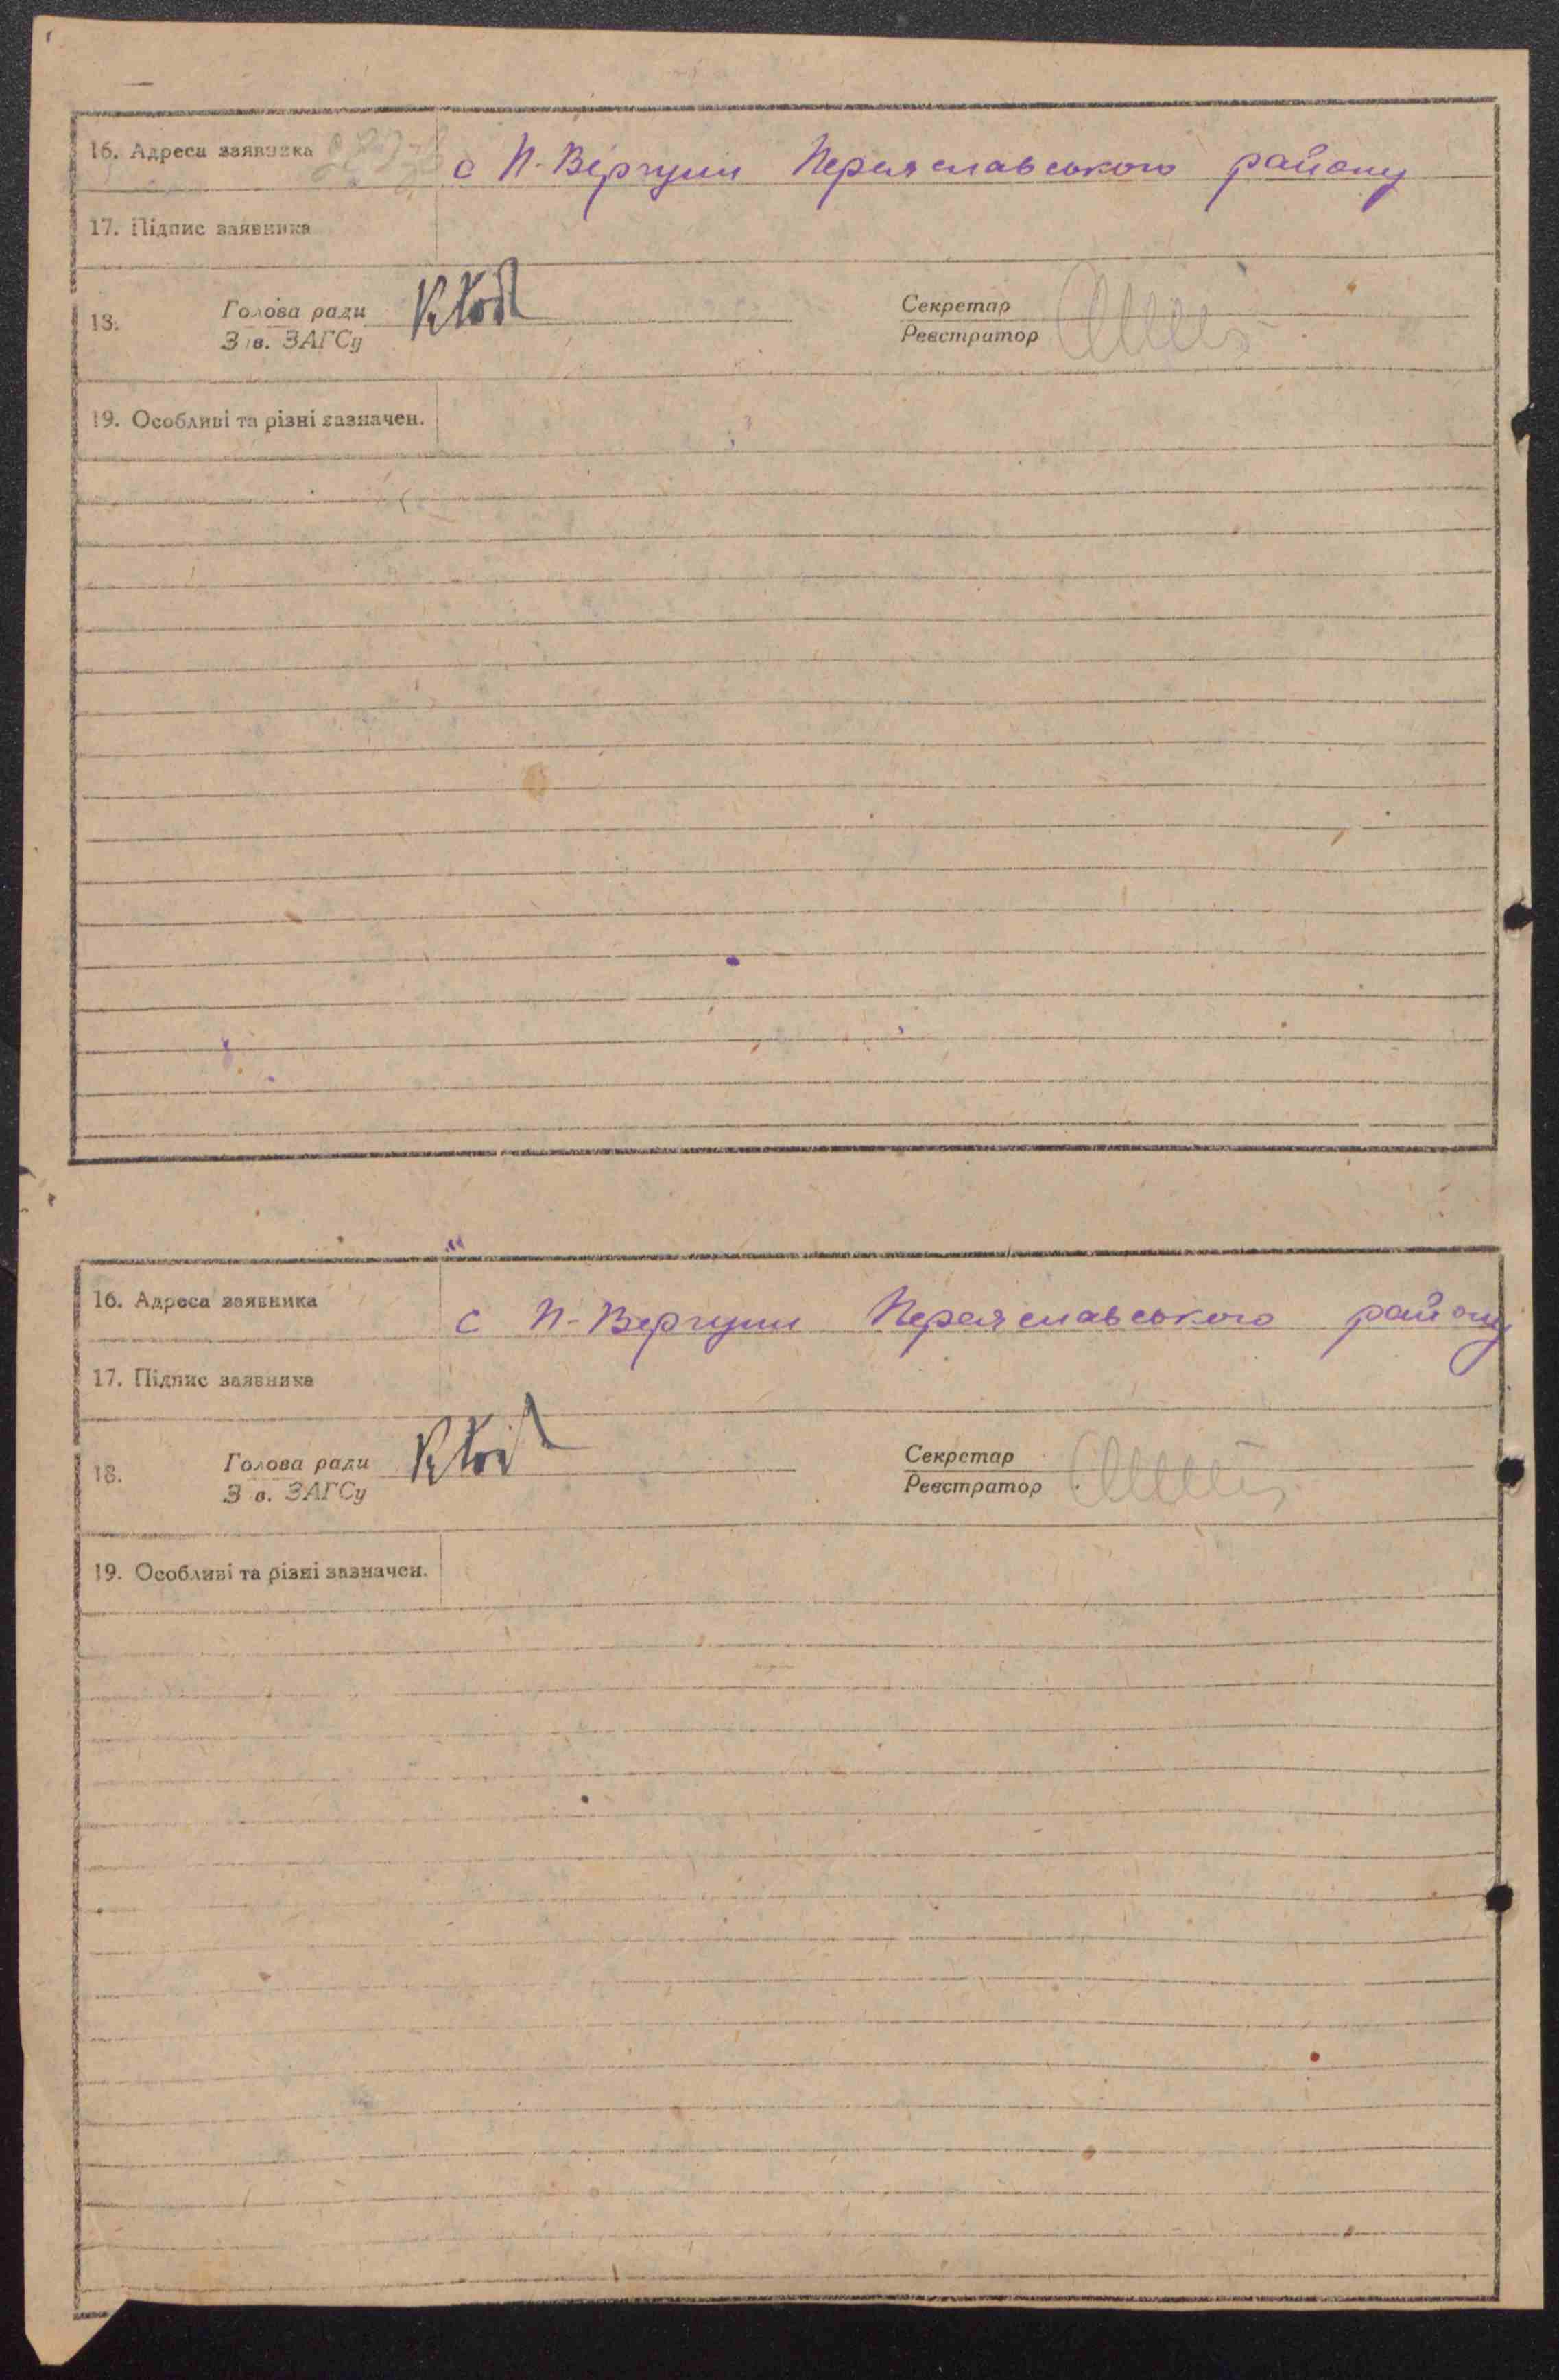 16. Адреса заявника с П-Вергуни Переяславського району
17. Підпис заявника
18. Голова ради Секретар
Зав. ЗАГСу Реєстратор
19. Особливі та різні зазначен.
16. Адреса заявника с П-Вергуни Переяславського району
17. Підпис заявника
18. Голова ради Секретар
Зав. ЗАГСу Реєстратор
19. Особливі та різні зазначен.